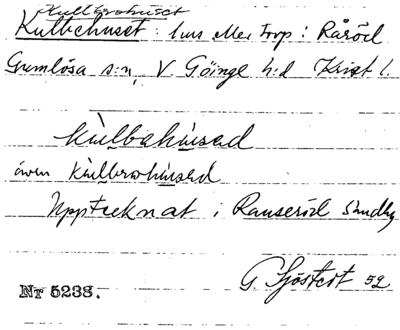 Kullbrohuset
Kulbehuset: hus eller torp i Råröd
Gumlösa s:n, V Göinge h:d Krist l.
kulbahusad
även kulbrohusad
Upptecknat i Ranseröd Sandby
G. Sjöstedt 52
Nr 5238.